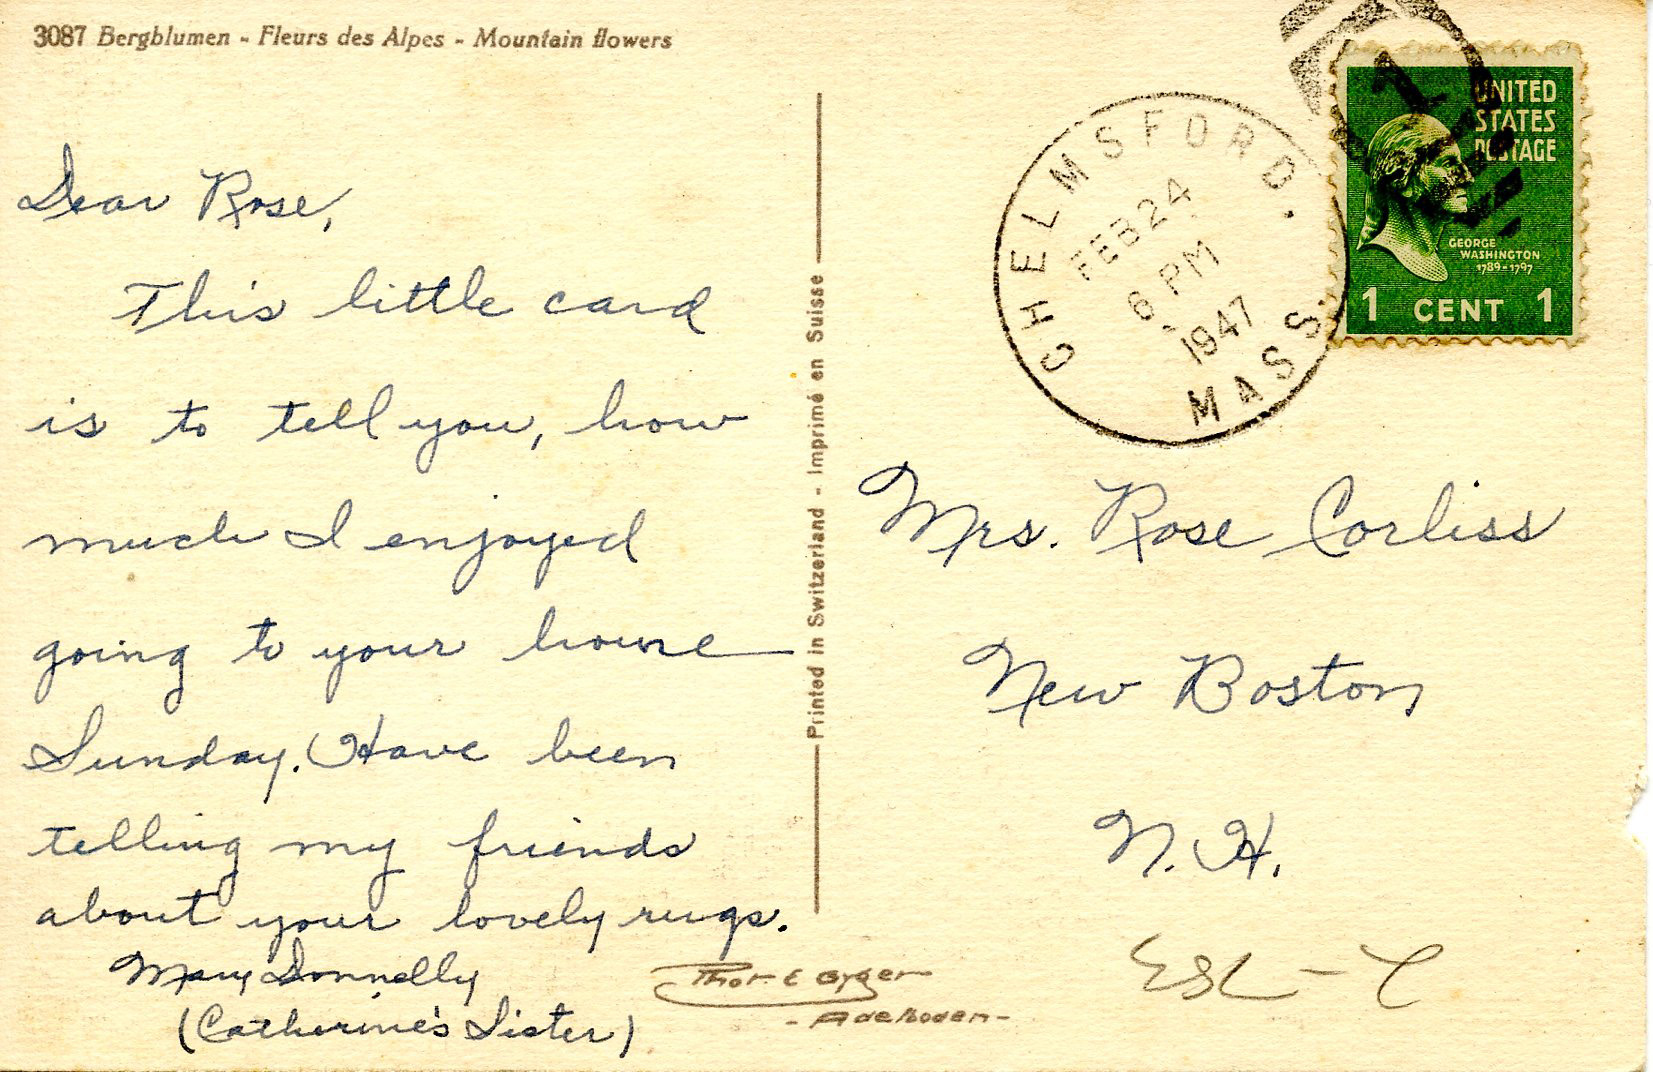 3087 Bergblumen - Fleurs des Alpes - Mountain flowers
Dear Rose,
This little card
is to tell you, how
much I enjoyed
going to your home
Sunday. Have been
telling my friends
about your lovely rugs.
Mary Donnelly
(Catherine's Sister)
Printed in Switzerland - Imprimé en Suisse
Phot. E Gyger
- Adelboden -
CHELMSFORD,
FEB 24
6 PM
1947
MASS.
UNITED
STATES
POSTAGE
GEORGE
WASHINGTON
1789-1797
1 CENT 1
Mrs. Rose Corliss
New Boston
N.H.